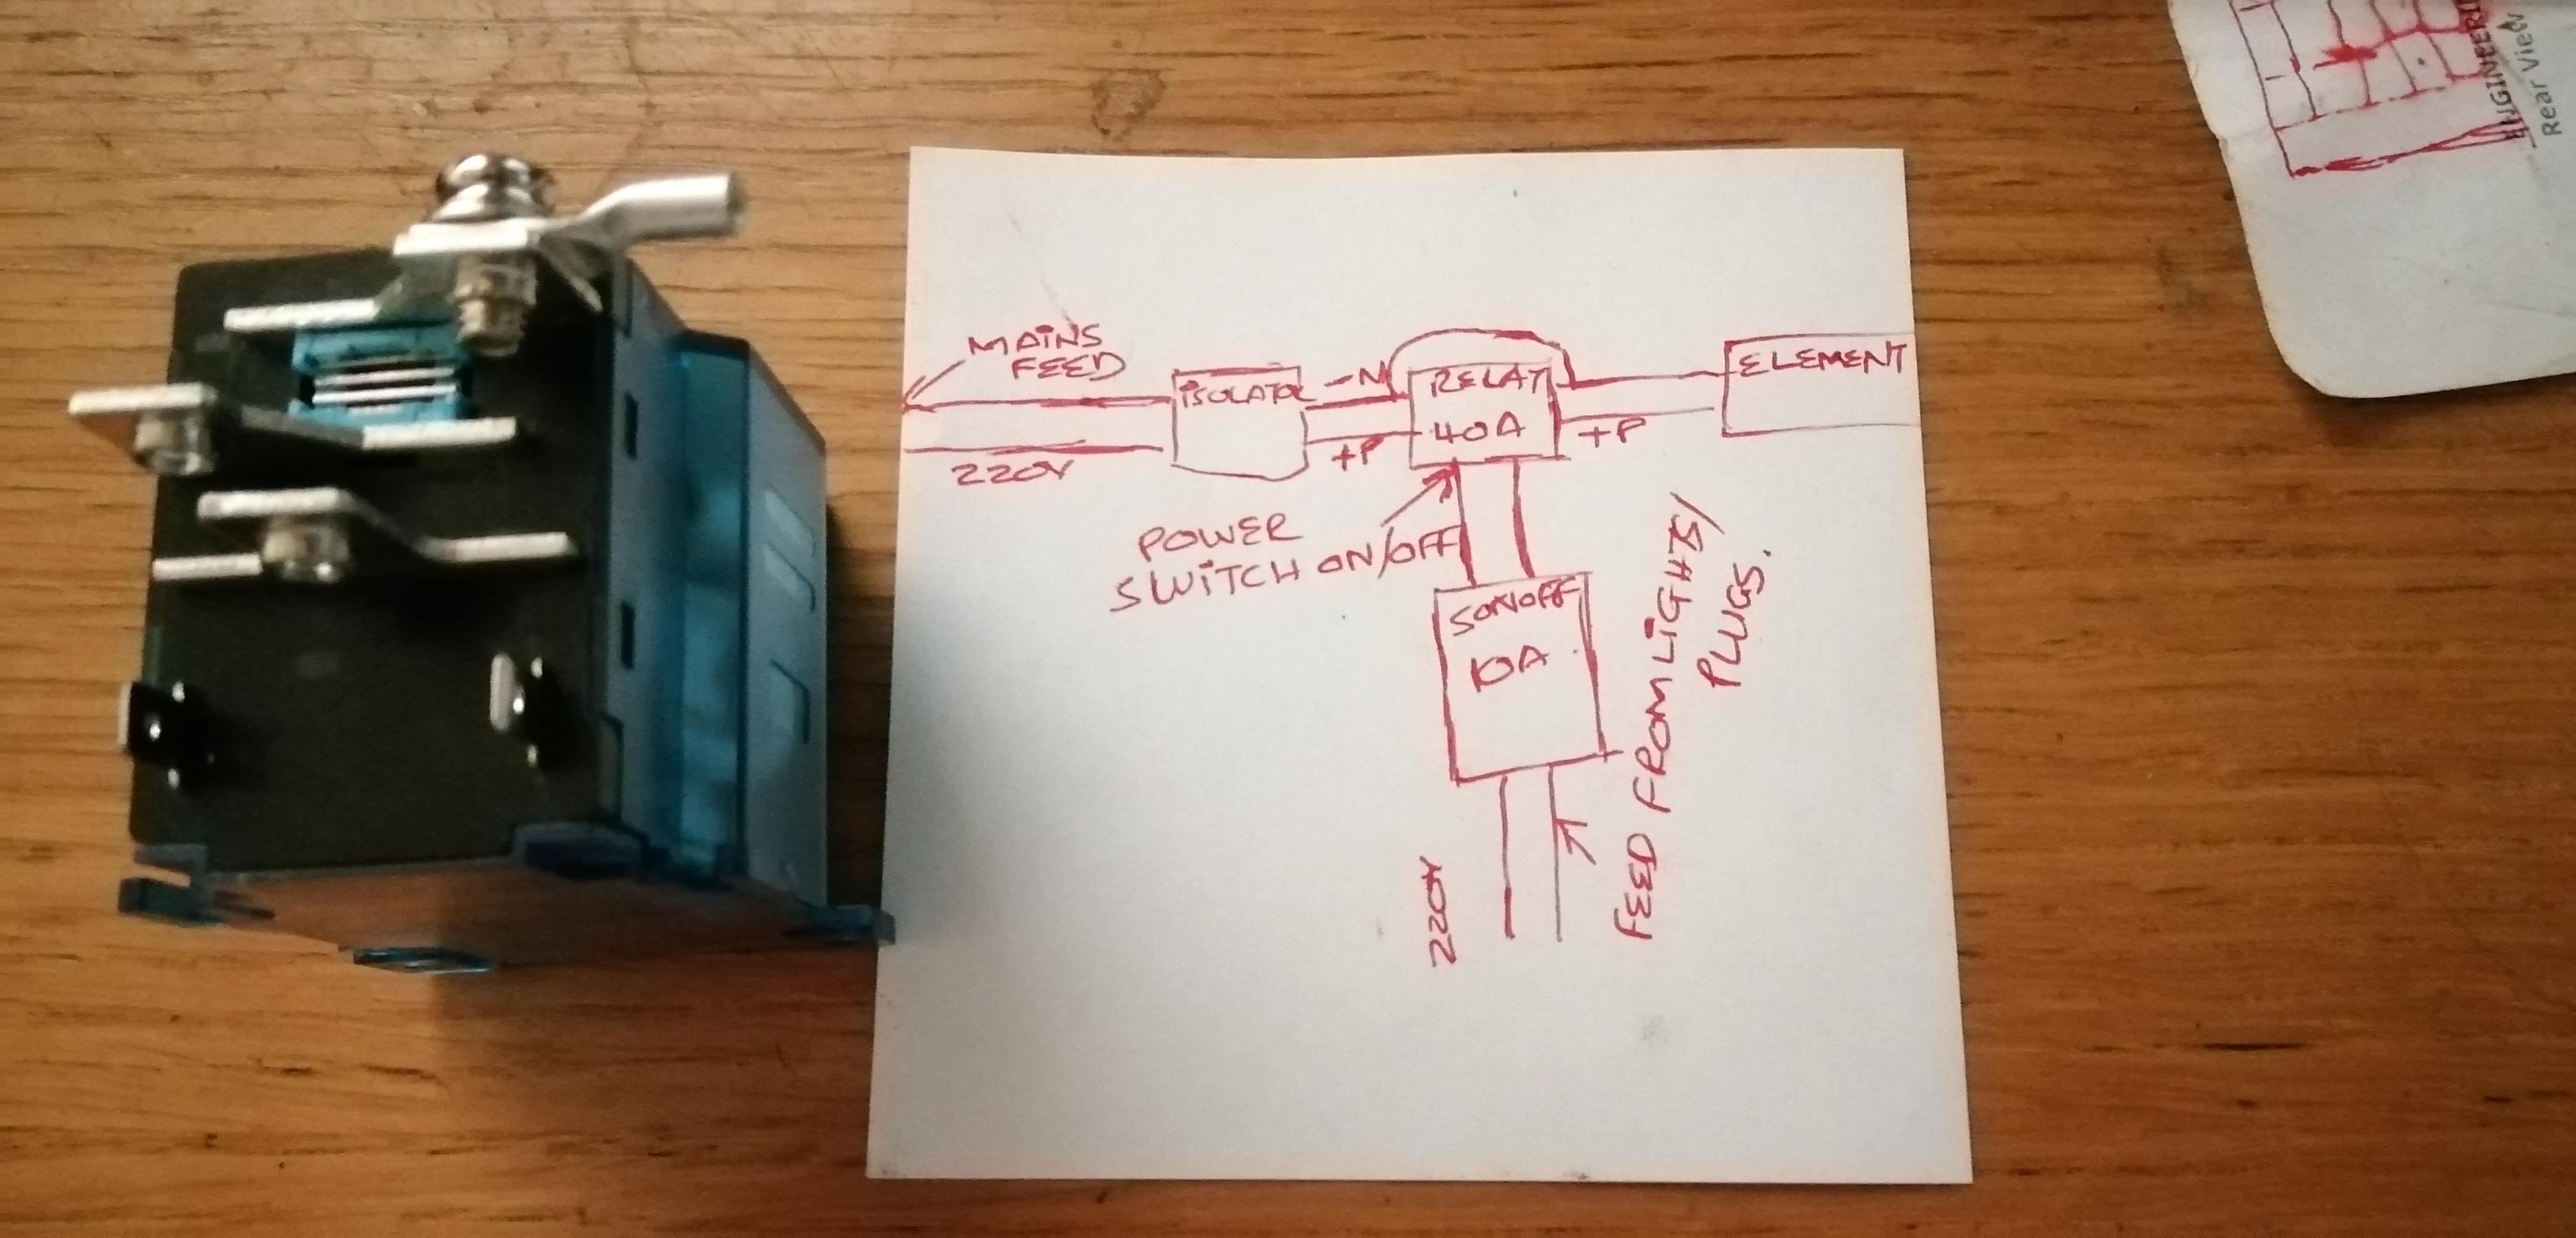 MAINS
FEED
ISOLATOR
-N
RELAY
40A
ELEMENT
220V
+P
+P
POWER
SWITCH ON/OFF
SONOFF
10A
FEED FROM LIGHTS/
PLUGS.
220V
ENGINEERI
Rear View